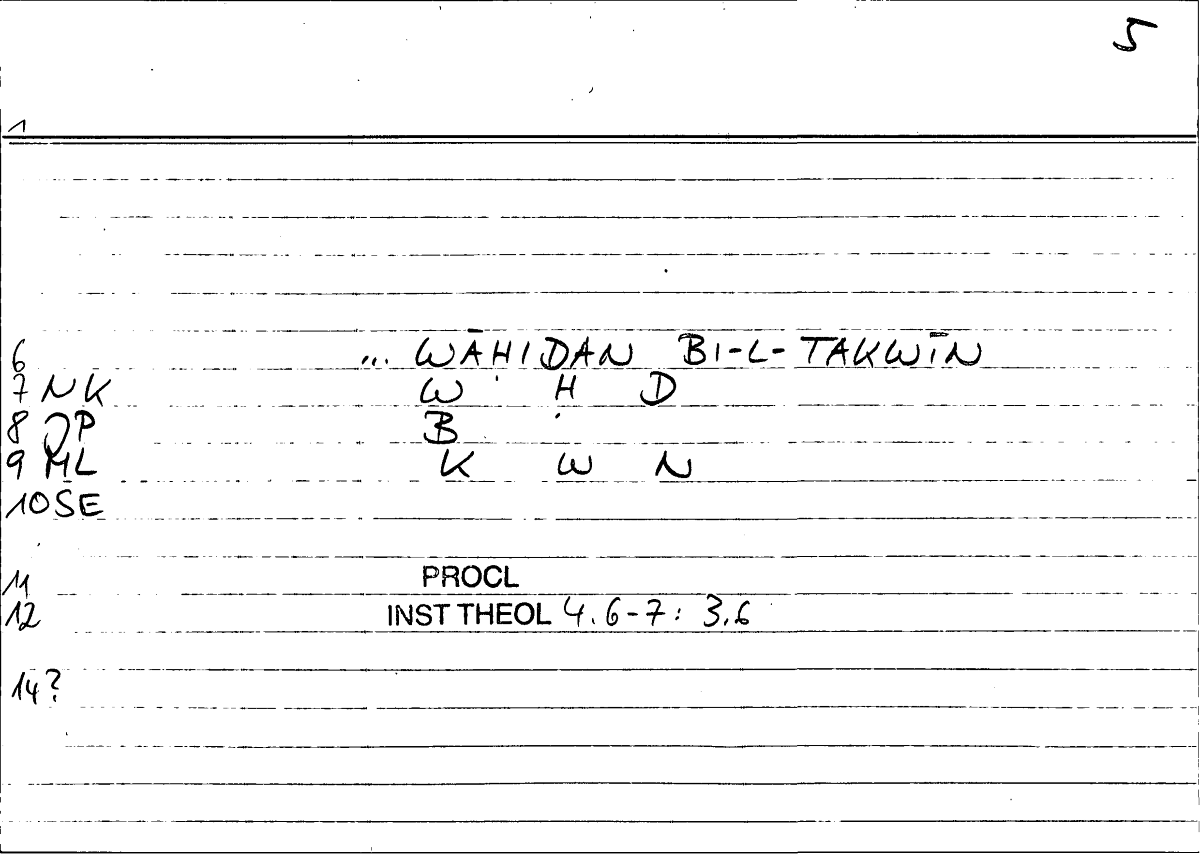 5
1
6 ... WĀḤIDAN BI-L-TAKWĪN
7 NK W Ḥ D
8 QP B
9 ML K W N
10 SE
11 PROCL
12 INST THEOL 4.6-7: 3.6
14?